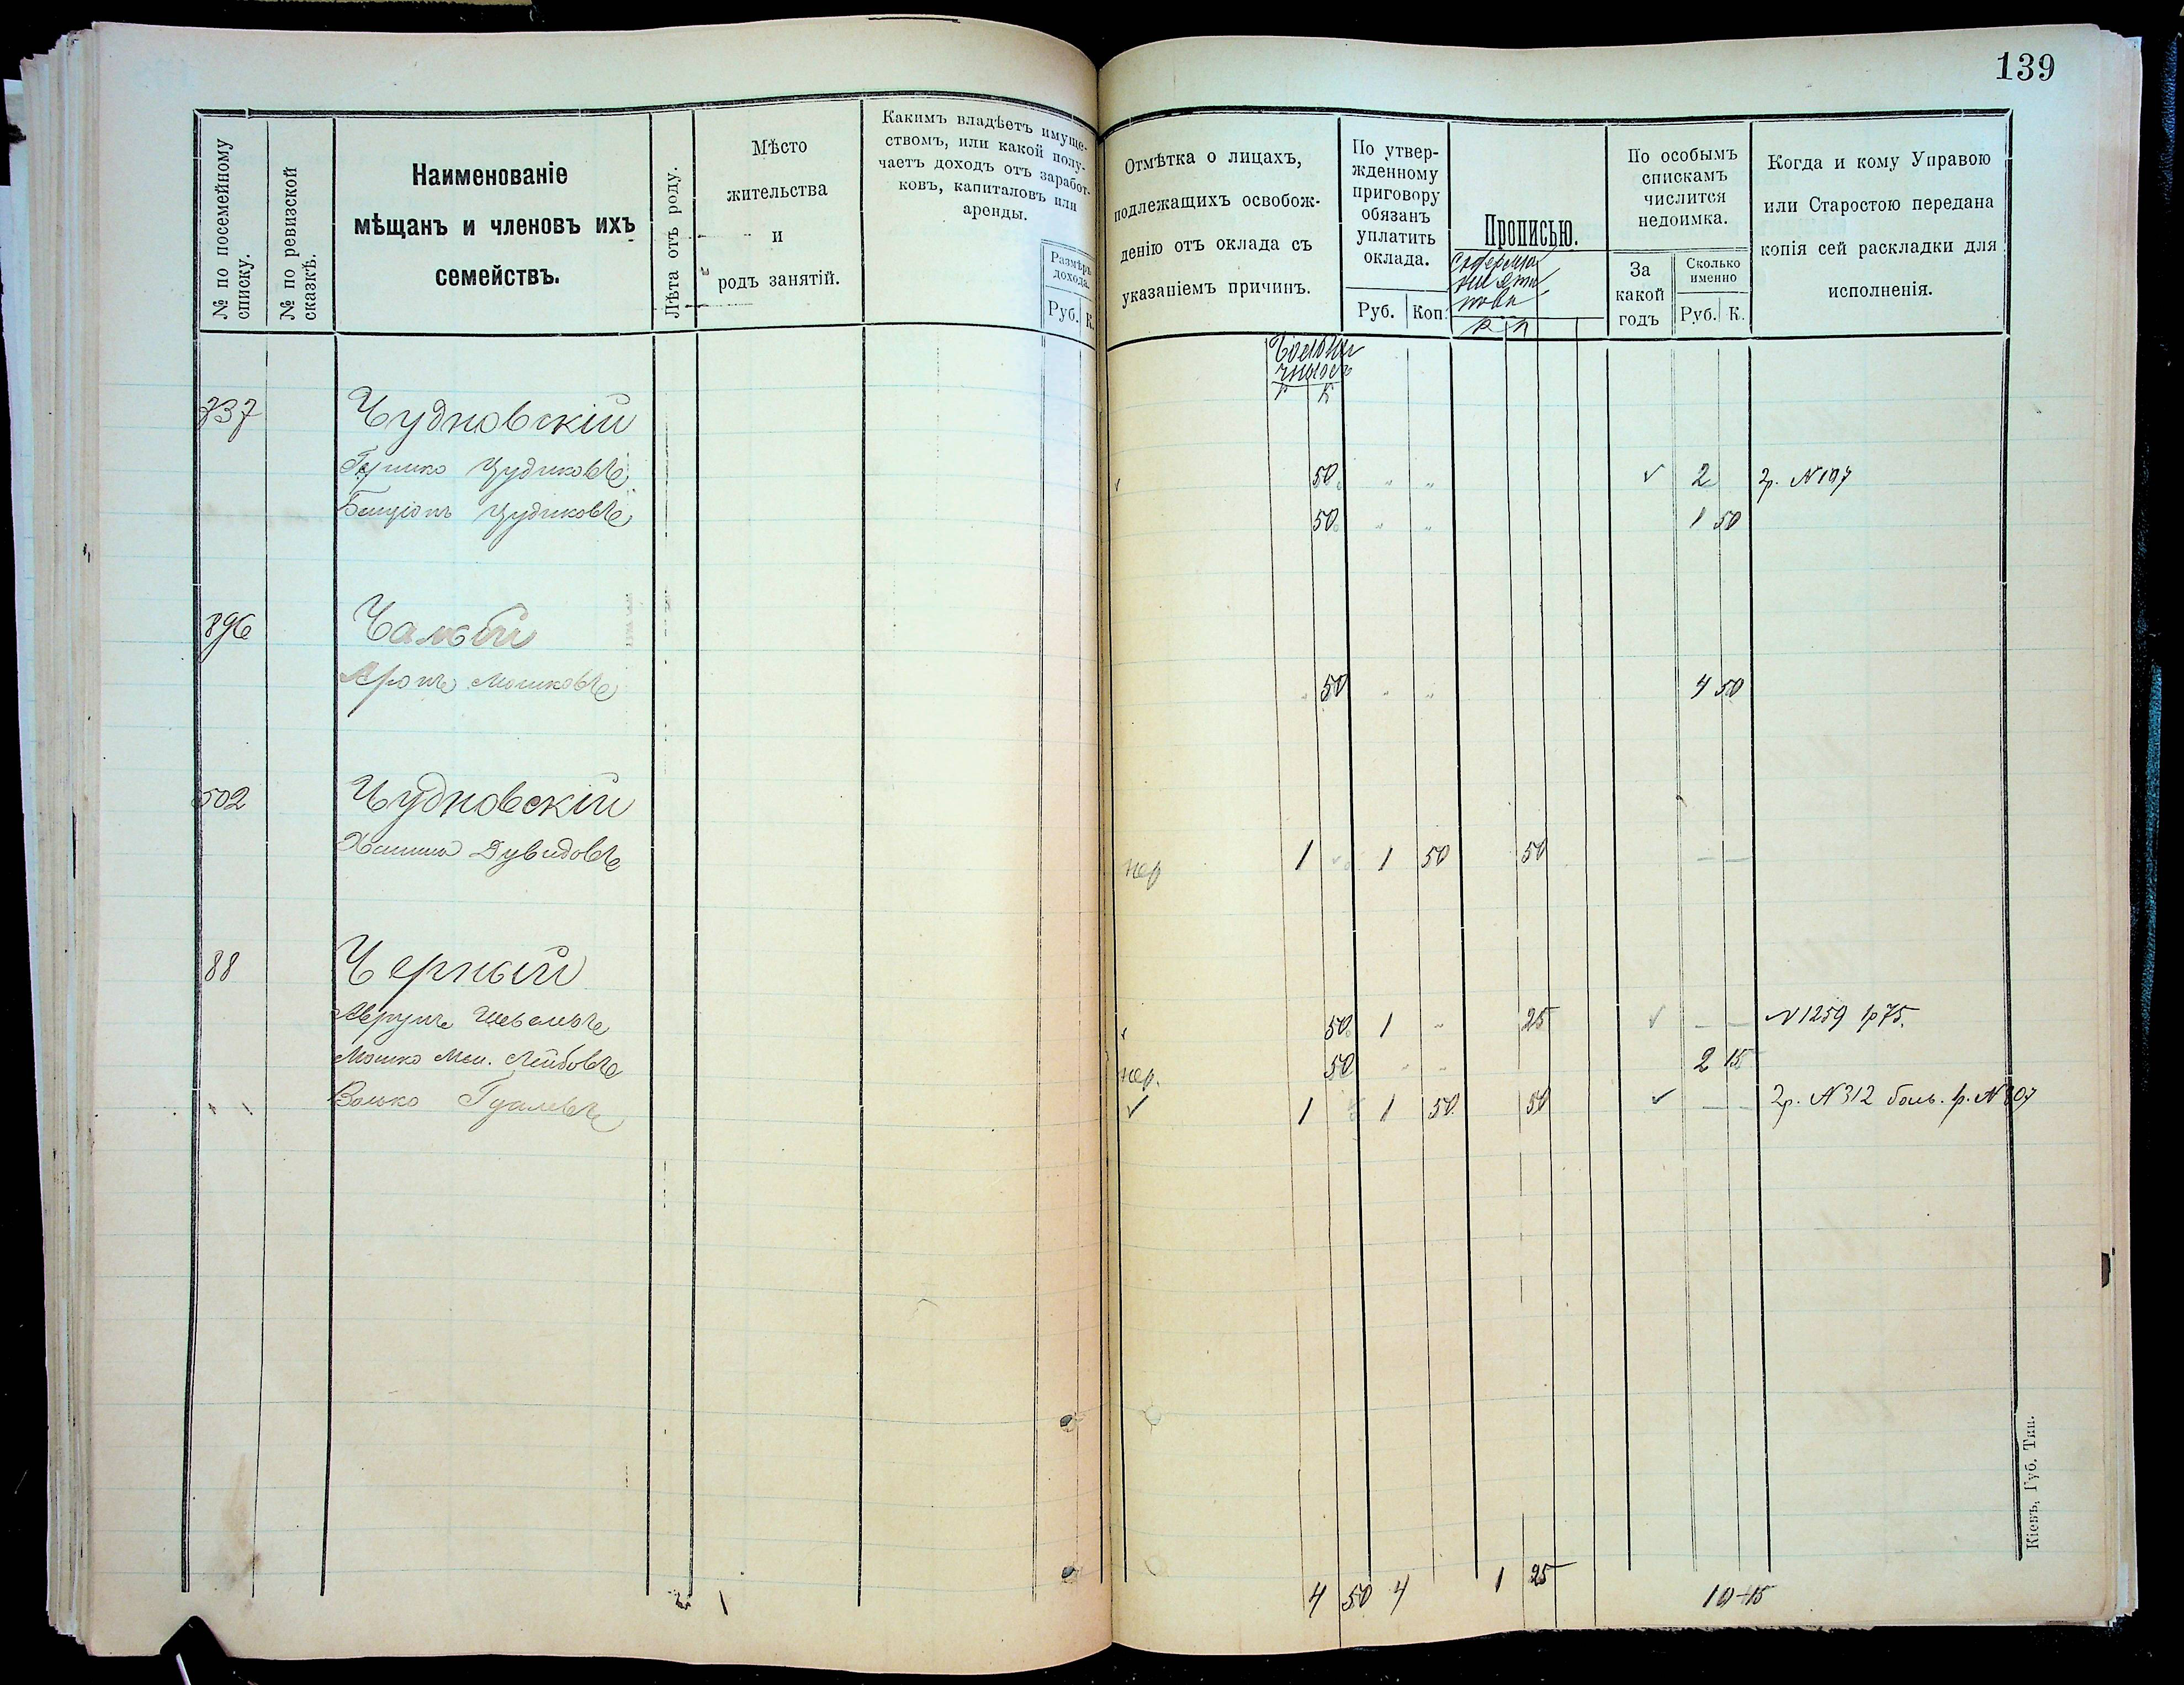 139
№ по посемейному списку.
№ по ревизской сказкѣ.
Наименованіе
мѣщанъ и членовъ ихъ
семействъ.
Лѣта отъ роду.
Мѣсто
жительства
и
родъ занятій.
Какимъ владѣетъ имуще-
ствомъ, или какой полу-
чаетъ доходъ отъ заработ-
ковъ, капиталовъ или
аренды.
Размѣръ
дохода.
Руб. К.
Отмѣтка о лицахъ,
подлежащихъ освобож-
денію отъ оклада съ
указаніемъ причинъ.
По утвер-
жденному
приговору
обязанъ
уплатить
оклада.
Руб. Коп.
Прописью.
По особымъ
спискамъ
числится
недоимка.
За
какой
годъ
Сколько
именно
Руб. К.
Когда и кому Управою
или Старостою передана
копія сей раскладки для
исполненія.
Р К
737 Чудновскій
50 " " ✓ 2 2р. N107
Бенціонъ 50 " " 1 50
896 Чалый
Аронъ Мошковъ " 50 " " 4 50
502 Чудновскій
Дувидовъ нер 1 1 50 50 — —
88 Черный
✓ 50 1 " 25 ✓ — — N1259 1р75.
Мошко Лейбовъ нер. 50 " " 2 15
Волько ✓ 1 1 50 50 ✓ — — 2р. N312 боль. 1р. N807
4 50 4 1 25 10 15
Кіевъ, Губ. Тип.